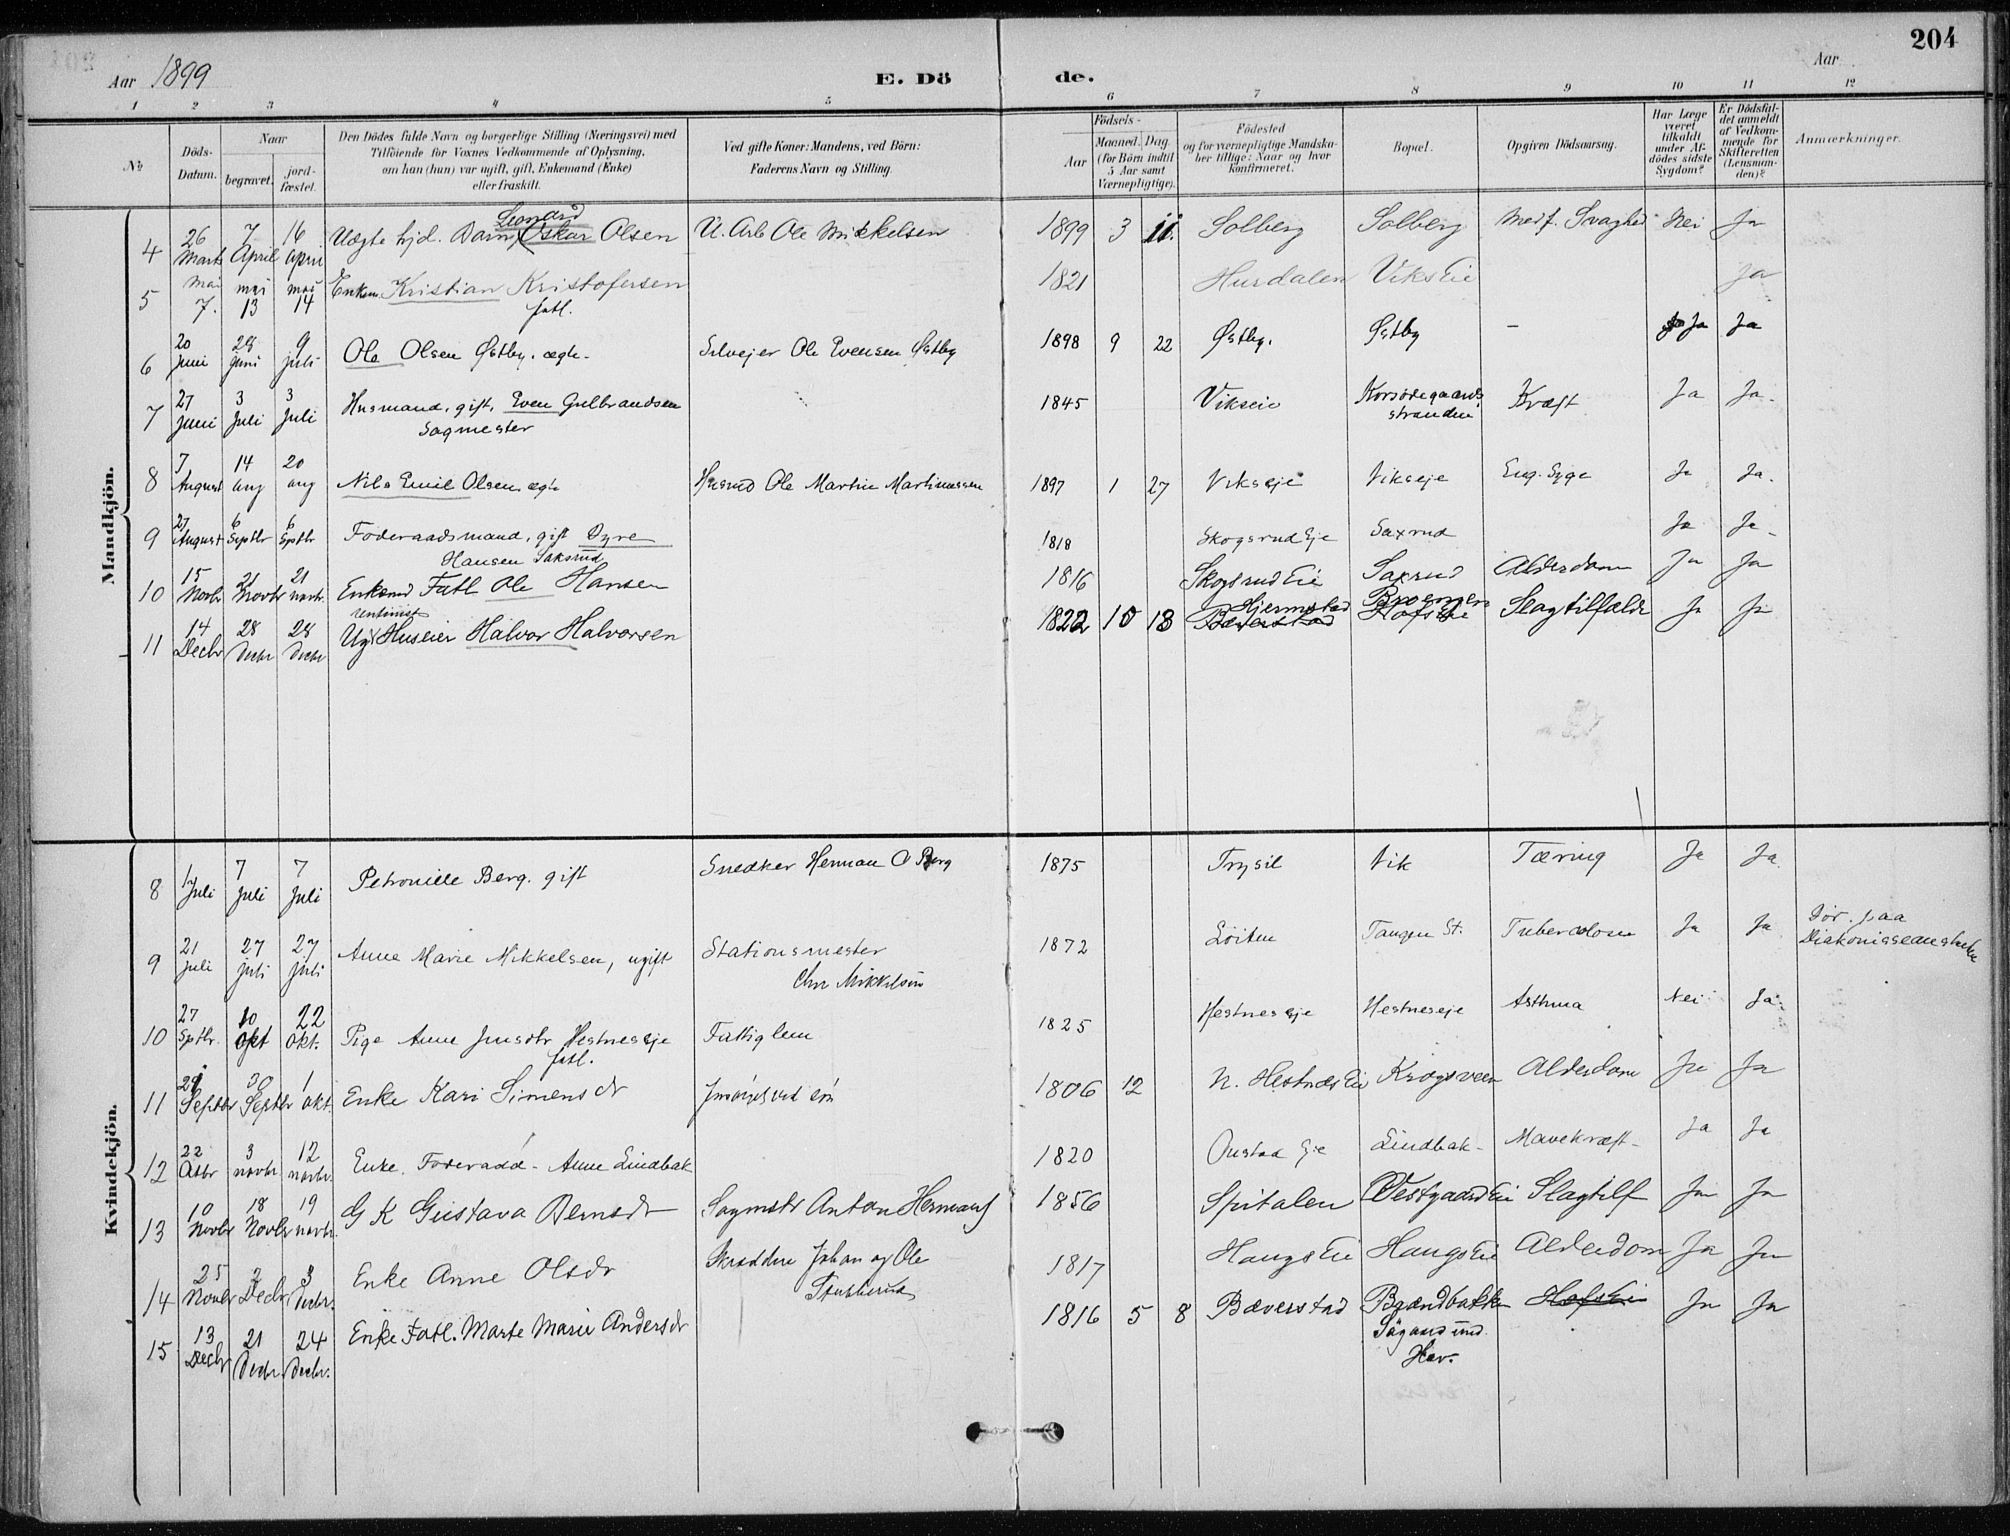 204
Aar 1899
E. Dö de.
Aar
1 2 3 4 5 6 7 8 9 10 11 12
№
Döds-Datum.
Naar
begravet.
jord-fæstet.
Den Dödes fulde Navn og borgerlige Stilling (Næringsvei) med
Tilföiende for Voxnes Vedkommende af Oplysning,
om han (hun) var ugift, gift, Enkemand (Enke)
eller fraskilt.
Ved gifte Koner: Mandens, ved Börn:
Faderens Navn og Stilling.
Födsels-
Aar
Maaned. Dag.
(for Börn indtil
5 Aar samt
Værnepligtige).
Födested
og for værnepligtige Mandska-
ber tillige: Naar og hvor
konfirmeret.
Bopæl.
Opgiven Dödsaarsag.
Har Læge
været
tilkaldt
under Af-
dödes sidste
Sygdom?
Er Dödsfal-
det anmeldt
af Vedkom-
mende for
Skifteretten
(Lensman-
den)?
Anmærkninger.
Mandkjön.
4 26 Marts 7 April 16 April Uægte hjd. Barn Leonard Oskar Olsen U. Arb Ole Mikkelsen 1899 3 11. Solberg Solberg Medf. Svaghed Nei Ja
5 Mai 7. mai 13 mai 14 Enkem. Kristian Kristofersen fatl. 1821 Hurdalen Viks Eie Ja
6 20 Juni 28 Juni 9 juli Ole Olsen Østby. ægte. Selvejer Ole Evensen Østby 1898 9 22 Østby. Østby — Ja Ja
7 27 Juni 3 Juli 3 Juli Husmand, gift, Even Gulbrandsen
Sagmester 1845 Vikseie Korsødegaards
stranden Kræft Ja Ja.
8 7 August 14 aug 20 aug Nils Emil Olsen ægte Husmd Ole Martin Martinussen 1897 1 27 Vikseje Vikseje Eng. Syge Ja Ja.
9 27 August 6 Septbr 6 Sptbr Føderaadsmand, gift Dyre
Hansen Saksrud 1818 Skogsrud Eje Saxrud Ja Ja
10 15 Novbr 21 Novbr 21 novbr. Enkemd Fatl Ole Hansen 1816 Skogsrud Eie Saxrud Alderdom Ja Ja
11 14 Decbr 28 Decbr 28 Decbr Ugf Huseier Halvor Halvorsen 1822 10 18 Hjermstad Slagtilfælde Ja Ja
Kvindekjön.
8 1 Juli 7 Juli 7 Juli Petronille Berg. gift Snedker Herman O Berg 1875 Trysil Vik Tæring Ja Ja
9 21 Juli 27 juli 27 Juli Anne Marie Mikkelsen, ugift Stationsmester
Chr Mikkelsen 1872 Løiten Tangen St. Tuberculose Ja Ja Dør. paa
Diakonisseanstalten
10 27 Sptbr. 10 Okt 22 Okt. Pige Anne Jensdtr Hestneseje
fatl. Fattiglem 1825 Hestneseje Hestneseje Asthma Nei Ja
11 29 Septbr 30 Septbr 1 okt. Enke Kari Simensdr 1806 12 N. Hestnæs Eie Krogsveen Alderdom Ja Ja
12 22 Otbr 3 novbr 12 novbr. Enke. Føderaad - Anne Lindbak 1820 Onstad Eje Lindbak Mavekræft Ja Ja
13 10 Novbr 18 Novbr 19 novbr. G K Gustava Berntsdr Sagmstr Anton Hermans 1856 Spitalen Vestgaard Eie Slagtilf Ja Ja
14 25 Novbr 2 Decbr 3 Decbr. Enke Anne Olsdr Skrædder Johan og Ole 1817 Haugs Eie Haugs Eie Alderdom Ja Ja
15 13 Decbr 21 Decbr 24 Decbr. Enke Fatl. Marte Marie Andersdr 1816 5 8 Bæverstad Brændbakken Hofs Eie Ja Ja